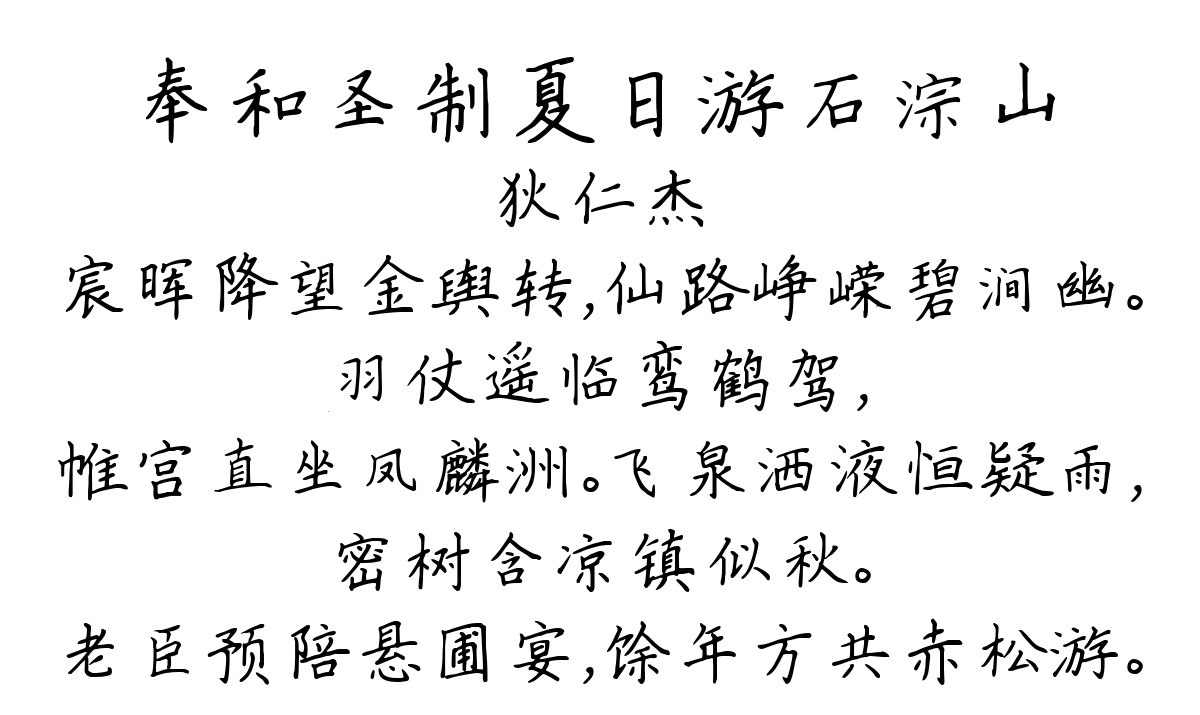 奉和圣制夏日游石淙山
狄仁杰
宸晖降望金舆转,仙路峥嵘碧涧幽。
羽仗遥临鸾鹤驾,
帷宫直坐凤麟洲。飞泉洒液恒疑雨,
密树含凉镇似秋。
老臣预陪悬圃宴,馀年方共赤松游。